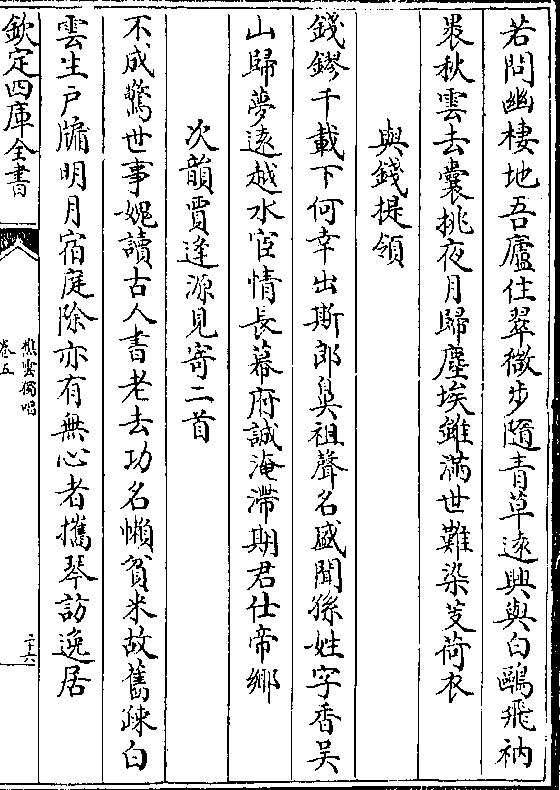 若問幽棲地吾廬住翠微步隨青草遠興與白鷗飛衲
裘秋雲去囊挑夜月歸塵埃雖滿世難染芰荷衣
與錢提領
錢鏐千載下何幸出斯郎奠祖聲名盛聞孫姓字香吳
山歸夢遠越水宦情長幕府誠淹滯期君仕帝鄉
次韻賈逢源見寄二首
不成驚世事媿讀古人書老去功名懶貧米故舊疎白
雲生戶牖明月宿庭除亦有無心者攜琴訪逸居
欽定四庫全書
樵雲獨唱
卷五
二十六